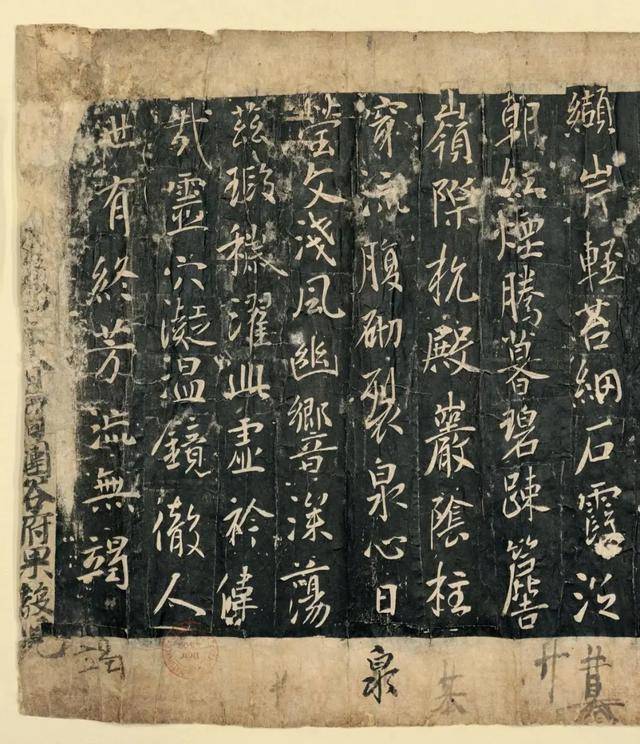 纈岸輕苔細石霞泛
朝紅煙騰暮碧踈簷
嶺際抗殿巖陰柱
穿流腹砌裂泉心日
瑩文淺風幽響深蕩
茲瑕穢濯此虛衿偉
哉靈穴凝溫鏡徹人
世有終芳流無竭
圍谷府果毅兒
泉